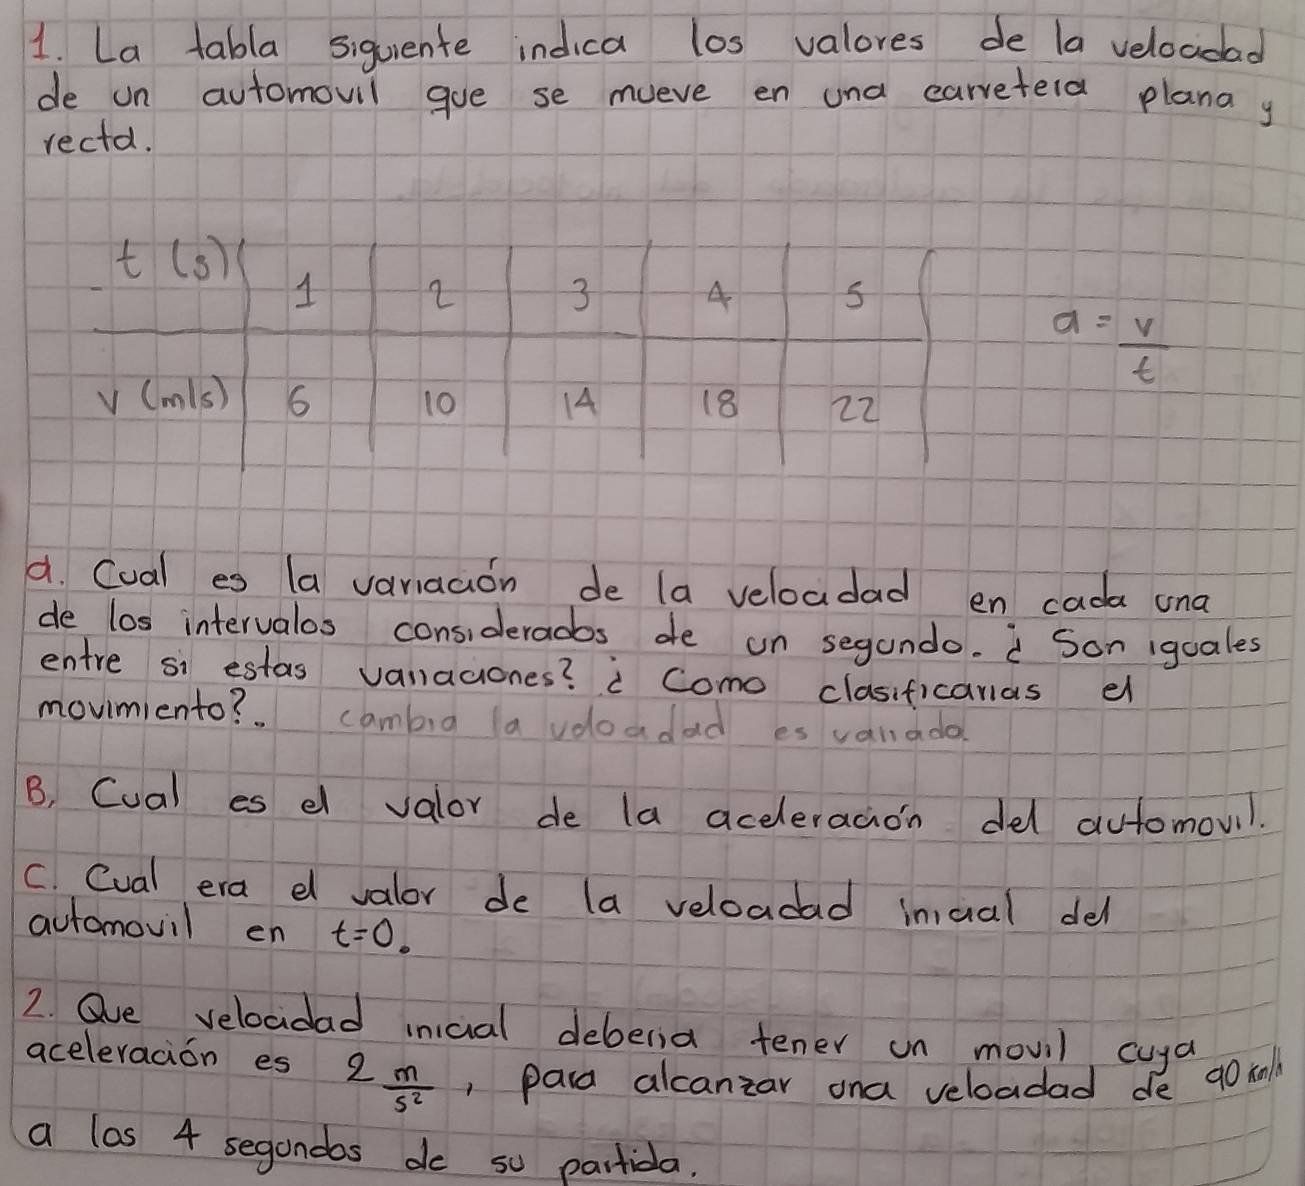 1. La tabla siguiente indica los valores de la velocidad
de un automovil que se mueve en una carretera plana y
recta.
t (s) 1 2 3 4 5
v (m/s) 6 10 14 18 22
a = v/t
a. Cual es la variación de la velocidad en cada una
de los intervalos considerados de un segundo. ¿ Son iguales
entre si estas variaciones? ¿ Como clasificarias el
movimiento?. cambia la velocidad es variado.
B. Cual es el valor de la aceleración del automovil.
C. Cual era el valor de la velocidad inicial del
automovil en t=0.
2. Que velocidad inicial deberia tener un movil cuya
aceleración es 2 m/s², para alcanzar una velocidad de 90 km/h
a los 4 segundos de su partida.